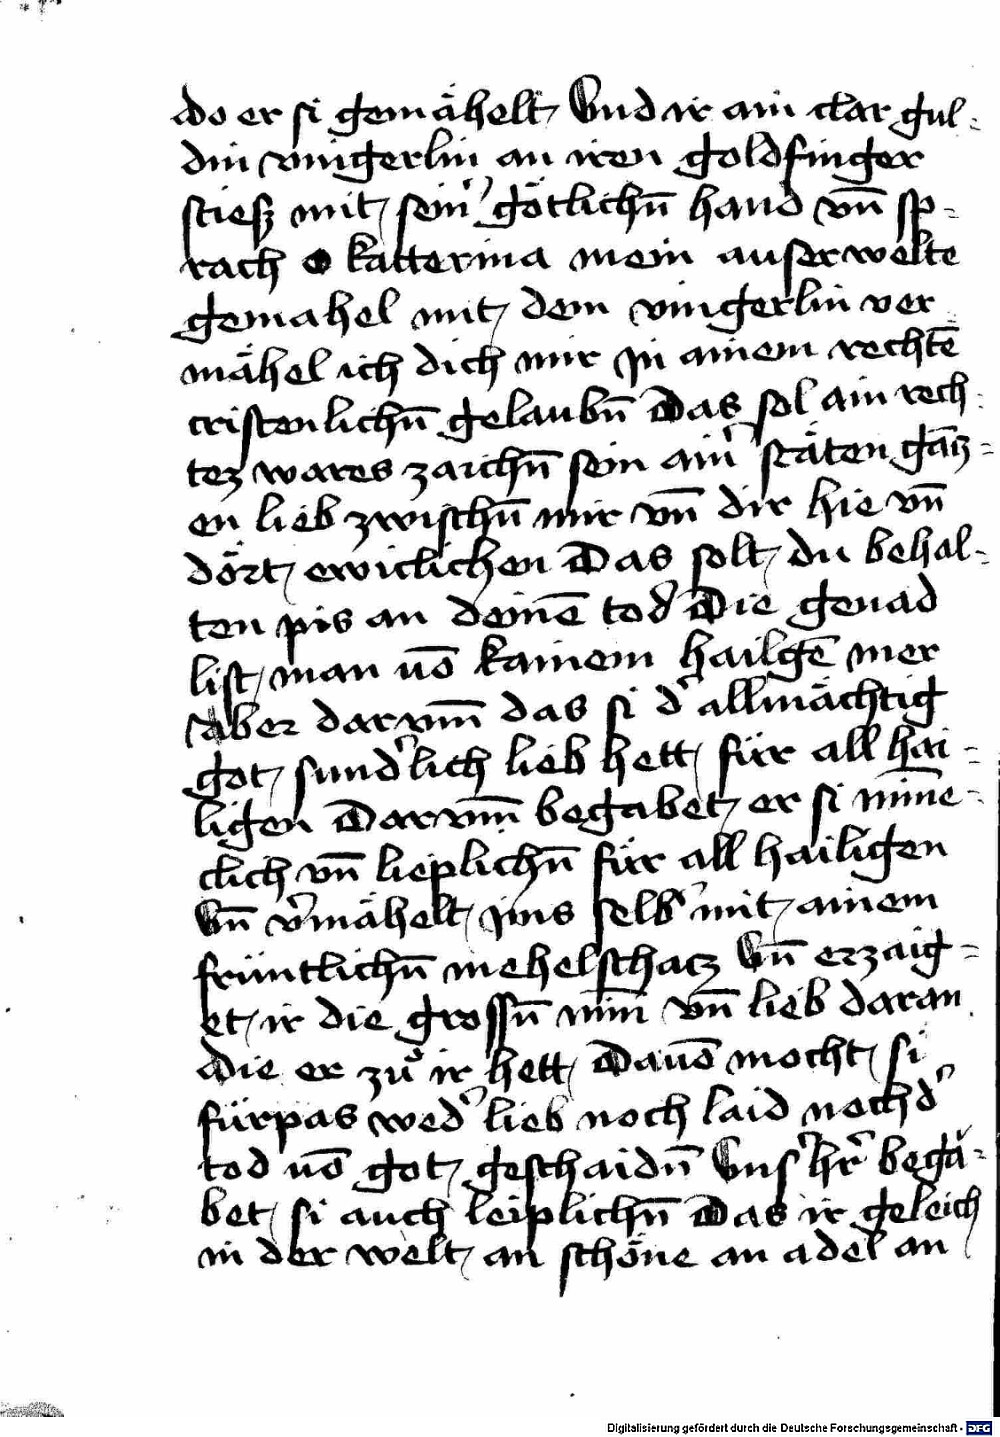 do er si gemähelt Vnd ir ain clar gul-
din vingerlin an iren goldfinger
stiesz mit sein̾ götlichn̄ hand vn̄ sp-
rach O katterina mein auserwelte
gemahel mit dem vingerlin ver
mähel ich dich mir jn ainem rechtē
cristenlichn̄ gelaubn̄ Das sol ain rech-
tez wares zaichn̄ sein ain̾ stäten gācz-
en lieb zwischn̄ mir vn̄ dir hie vn̄
dört ewiclichen Das solt du behal-
ten pis an deinē tod Die genad
list man vō kainem hailgē mer
aber darvm̄ das si d̾ allmächtig
got sund̾lich lieb hett für all hai-
ligen Darvm̄ begabet er si min̄e-
clich vn̄ lieplichn̄ für all hailigen
Vn̄ v̾mähelt jms selb̾ mit ainem
früntlichn̄ mehelschacz Vn̄ erzaig-
et ir die grossn̄ min̄ vn̄ lieb daran
die er zů ir hett Dauō mocht si
fürpas wed̾ lieb noch laid noch d̾
tod vō got geschaidn̄ Vns̾ hr̾ begä-
bet si auch leiplichn̄ Das ir geleich
in der welt an schöne an adel an
Digitalisierung gefördert durch die Deutsche Forschungsgemeinschaft - DFG